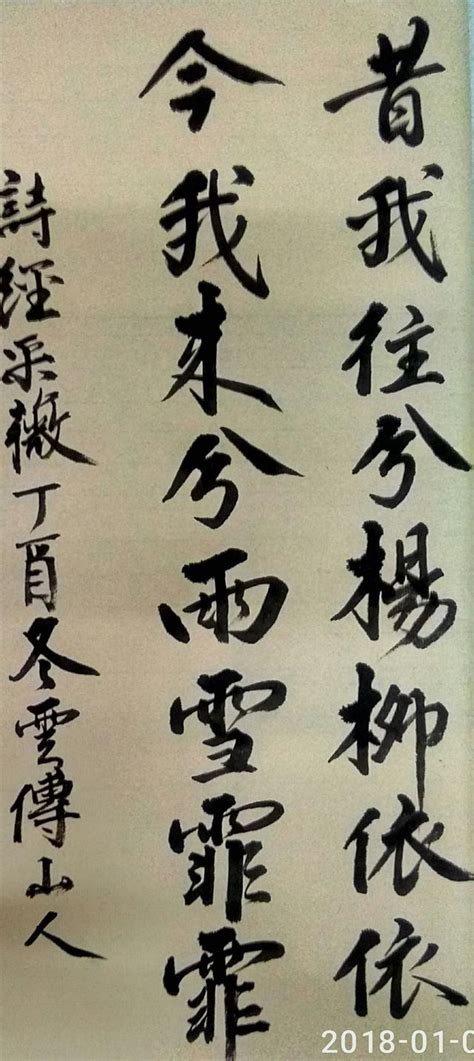 昔我往兮楊柳依依
今我来兮雨雪霏霏
詩經采薇丁酉冬雲傳山人
2018-01-0